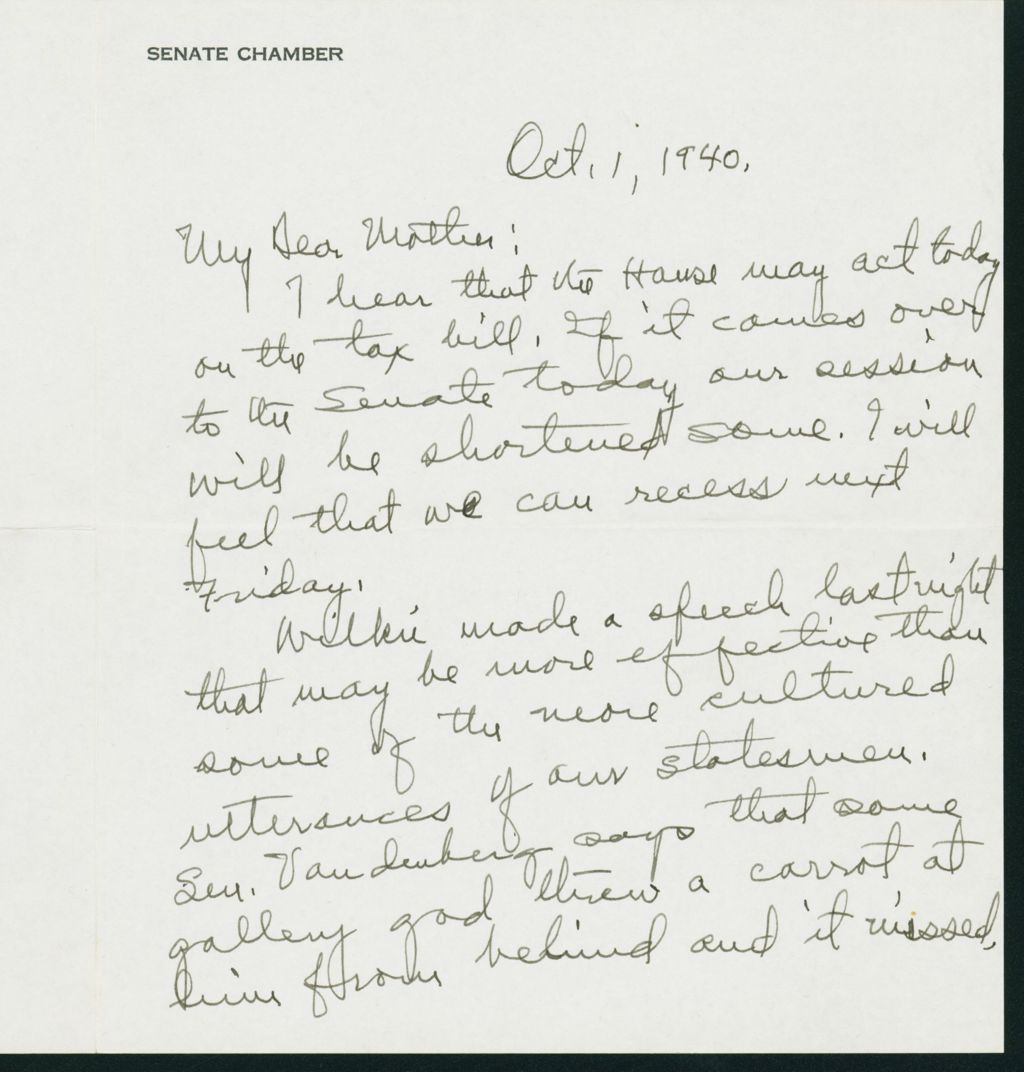 SENATE CHAMBER
Oct. 1, 1940.
My Dear Mother:
I hear that the House may act today
on the tax bill. If it comes over
to the Senate today our session
will be shortened some. I will
feel that we can recess next
Friday.
Willkie made a speech last night
that may be more effective than
some of the more cultured
utterances of our statesmen.
Sen. Vandenberg says that some
gallery god threw a carrot at
him from behind and it missed,